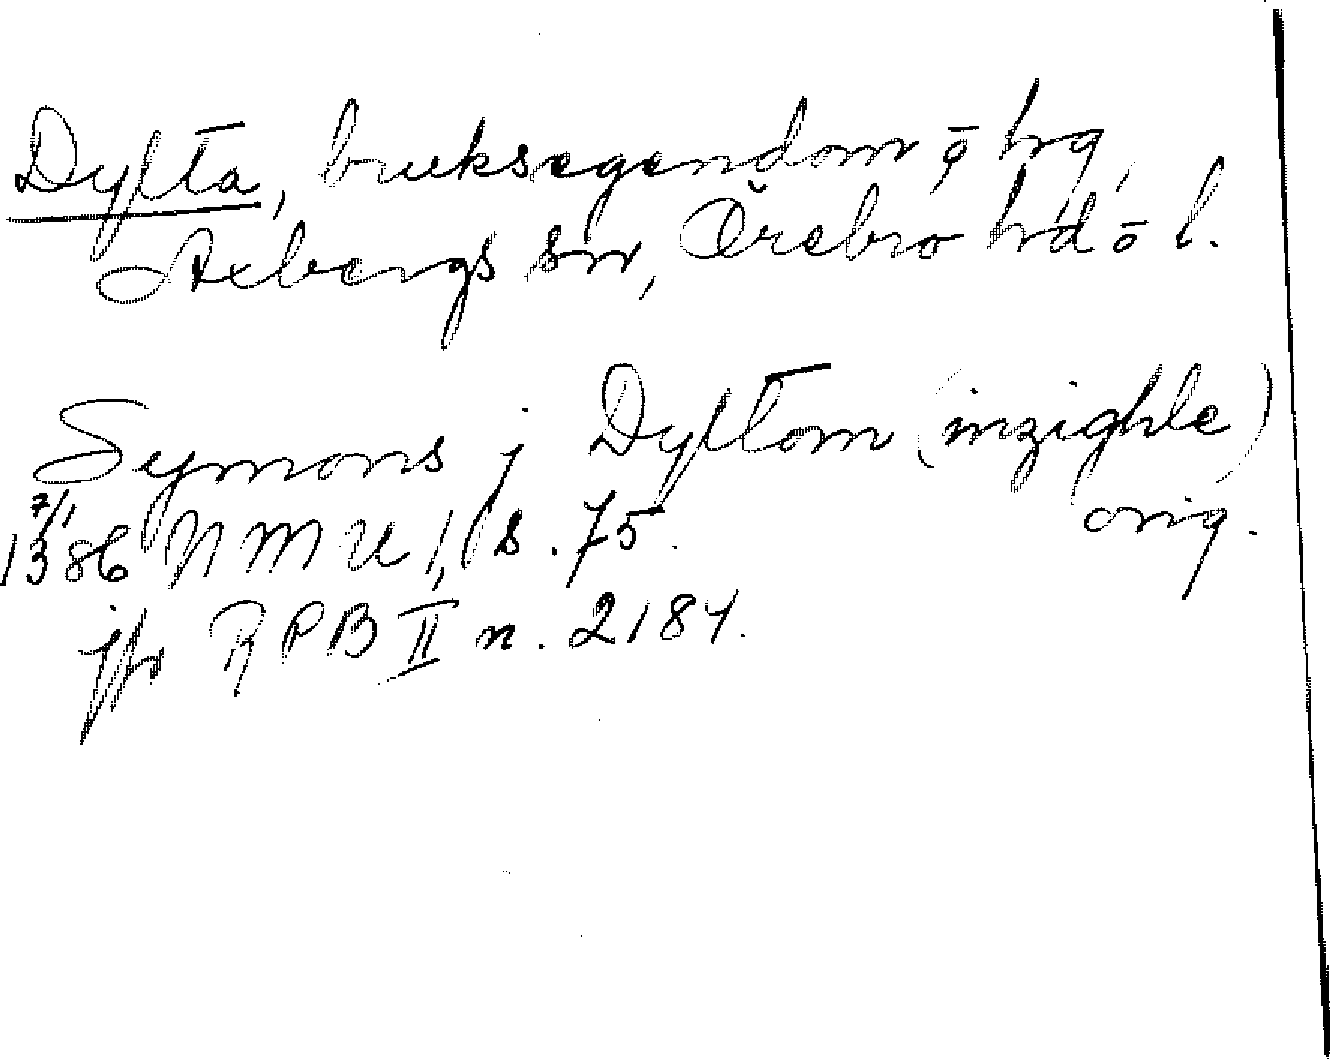 Dylta, bruksegendom o hg,
Axbergs sn, Örebro hd o l.
Symons j Dyltom (inzighle)
orig.
7/1 1386 NMU 1, s. 75.
jfr RPB II n. 2184.